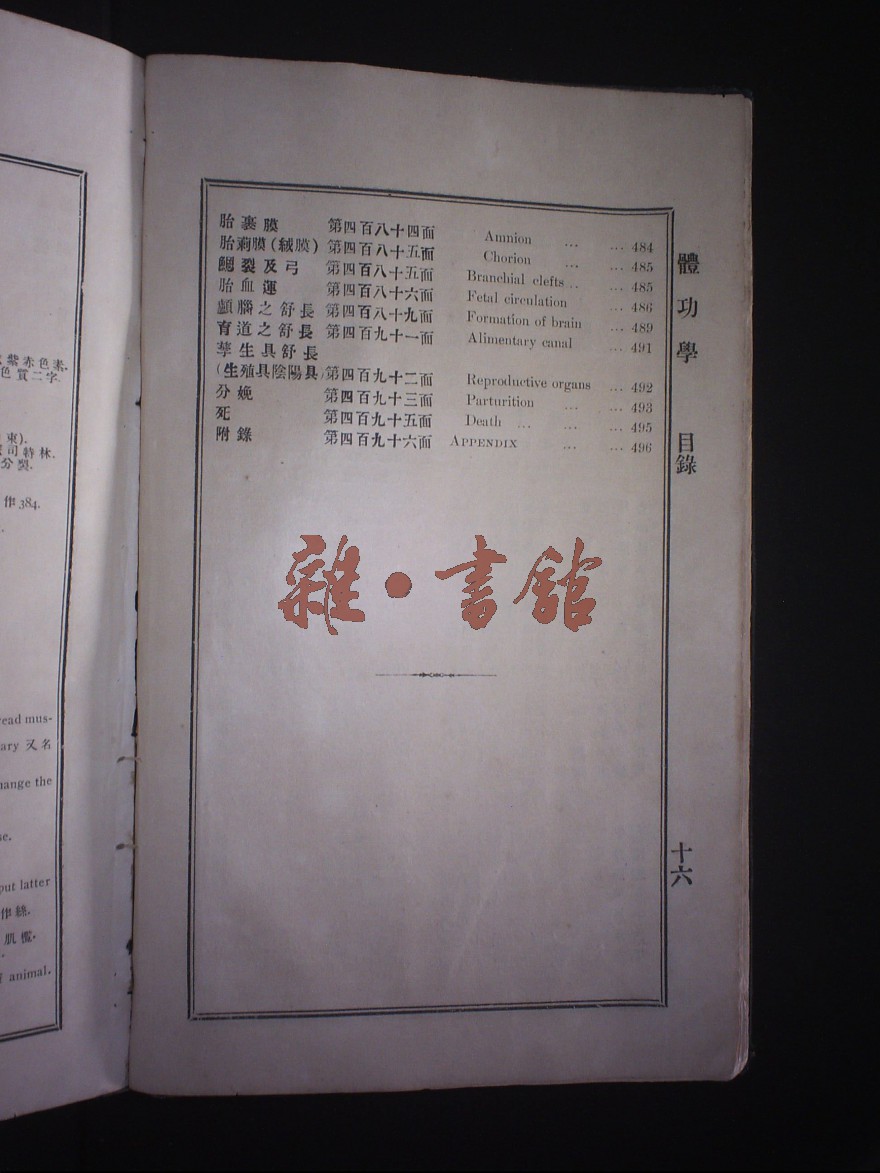 紫赤色素.
色質二字.
東).
司特林.
分製.
作384.
read mus-
ary 又名
hange the
se.
put latter
作絲.
肌檻.
animal.
胎裹膜 第四百八十四面 Amnion ... ... 484
胎莿膜(絨膜) 第四百八十五面 Chorion ... ... 485
鰓裂及弓 第四百八十五面 Branchial clefts .. ... 485
胎血運 第四百八十六面 Fetal circulation ... 486
顱腦之舒長 第四百八十九面 Formation of brain ... 489
育道之舒長 第四百九十一面 Alimentary canal ... 491
孳生具舒長
(生殖具陰陽具) 第四百九十二面 Reproductive organs ... 492
分娩 第四百九十三面 Parturition ... ... 493
死 第四百九十五面 Death ... ... ... 495
附錄 第四百九十六面 APPENDIX ... ... 496
體功學 目錄
十六
雜·書館